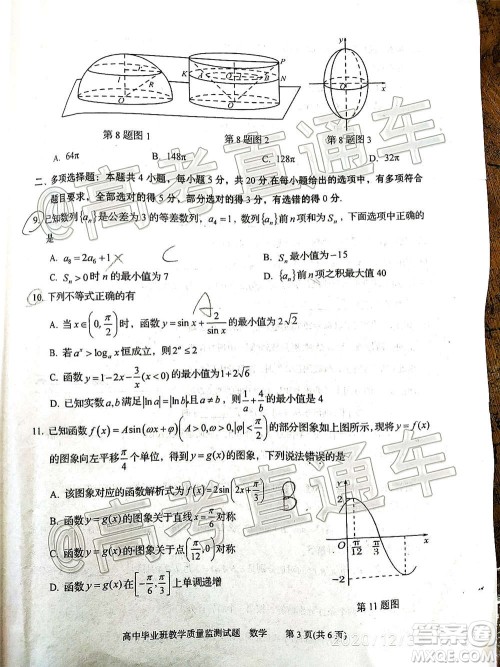 y
K A O B N P
R O
x
第8题图1 第8题图2 第8题图3
A. 64π B. 148π C. 128π D. 32π
二. 多项选择题：本题共4小题，每小题5分，共20分.在每小题给出的选项中，有多项符合
题目要求，全部选对的得5分，部分选对的得3分，有选错的得0分.
9. 已知数列{aₙ}是公差为3的等差数列，a₄=1，数列{aₙ}前n项和为Sₙ，下面选项中正确的
是
A. a₈=2a₆+1 × C B. Sₙ最小值为-15
C. Sₙ>0时n的最小值为7 D. {aₙ}前n项积最大值40
10. 下列不等式正确的有 A
A. 当x∈(0, π/2)时，函数y=sin x+2/sin x的最小值为2√2
B. 若aˣ>logₐx恒成立，则2ᵃ≤2
C. 函数y=1-2x-3/x(x<0)的最小值为1+2√6
D. 已知实数a,b满足|ln a|=|ln b|且a≠b，则1/a+4/b的最小值是4
11. 已知函数f(x)=Asin(ωx+φ)(A>0,ω>0,|φ|<π/2)的部分图象如上图所示，现将y=f(x)
的图象向左平移π/4个单位，得到y=g(x)的图象，下列说法错误的是
A. 该图象对应的函数解析式为f(x)=2sin(2x+π/3) B
B. 函数y=g(x)的图象关于直线x=π/6对称
C. 函数y=g(x)的图象关于点(π/12,0)对称
D. 函数y=g(x)在[-π/6,π/3]上单调递增
y
2
O π/12 π/3 x
-2
第11题图
高中毕业班教学质量监测试题 数学 第3页(共6页)
@高考直通车
@高考直通车